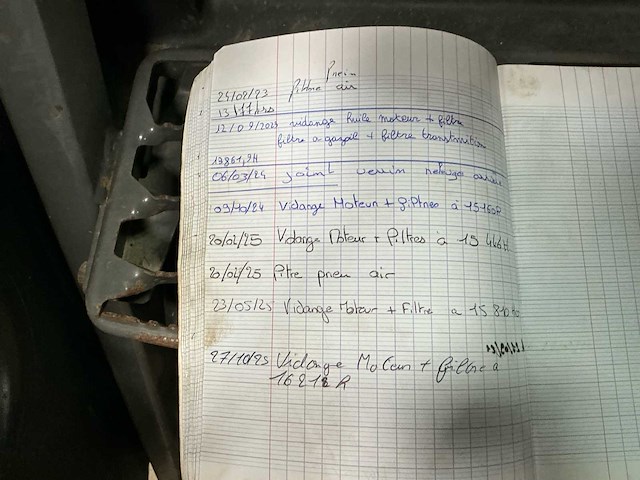 Pneu
24/02/23 filtre air
13 177 hrs
12/09/2023 vidange huile moteur + filtre
filtre a gazoil + filtre transmission
13861,9H
06/03/24 joint verrin
09/10/24 Vidange Moteur + filtres à
20/02/25 Vidange Moteur + filtres à 15
20/02/25 filtre pneu air
23/05/25 Vidange Moteur + Filtre a 15
27/10/25 Vidange Moteur + filtre a
16212 h